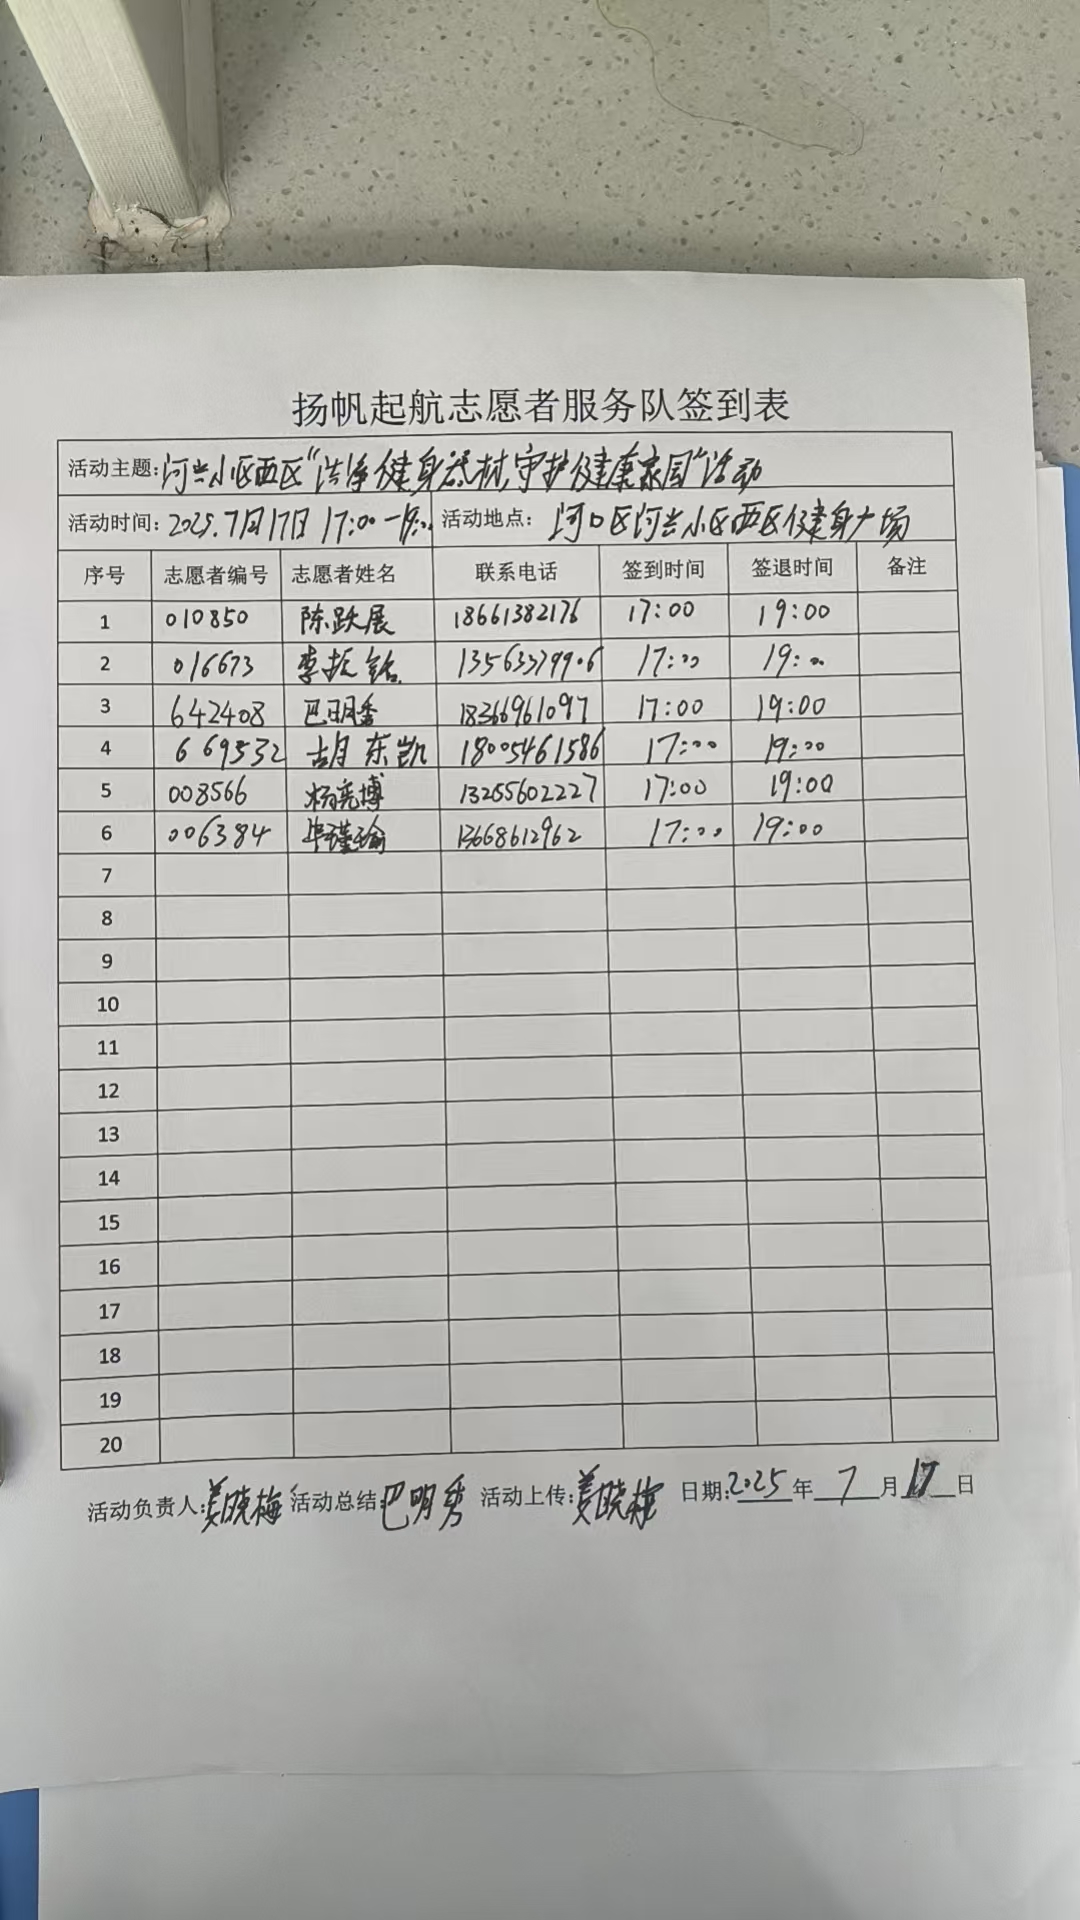 扬帆起航志愿者服务队签到表
活动主题:河兴小区西区“洁净健身器材,守护健康家园”活动
活动时间:2025.7月17日 17:00— 活动地点:河口区河兴小区西区健身广场
序号 志愿者编号 志愿者姓名 联系电话 签到时间 签退时间 备注
1 010850 陈跃展 18661382176 17:00 19:00
2 016673 李振铭 13563379906 17:00 19:00
3 642408 巴明秀 18366961097 17:00 19:00
4 669532 胡东凯 18005461586 17:00 19:00
5 008566 杨亮博 13255602227 17:00 19:00
6 006384 毕瑾瑜 13668612962 17:00 19:00
7
8
9
10
11
12
13
14
15
16
17
18
19
20
活动负责人:姜晓梅 活动总结:巴明秀 活动上传:姜晓梅 日期:2025年7月17日